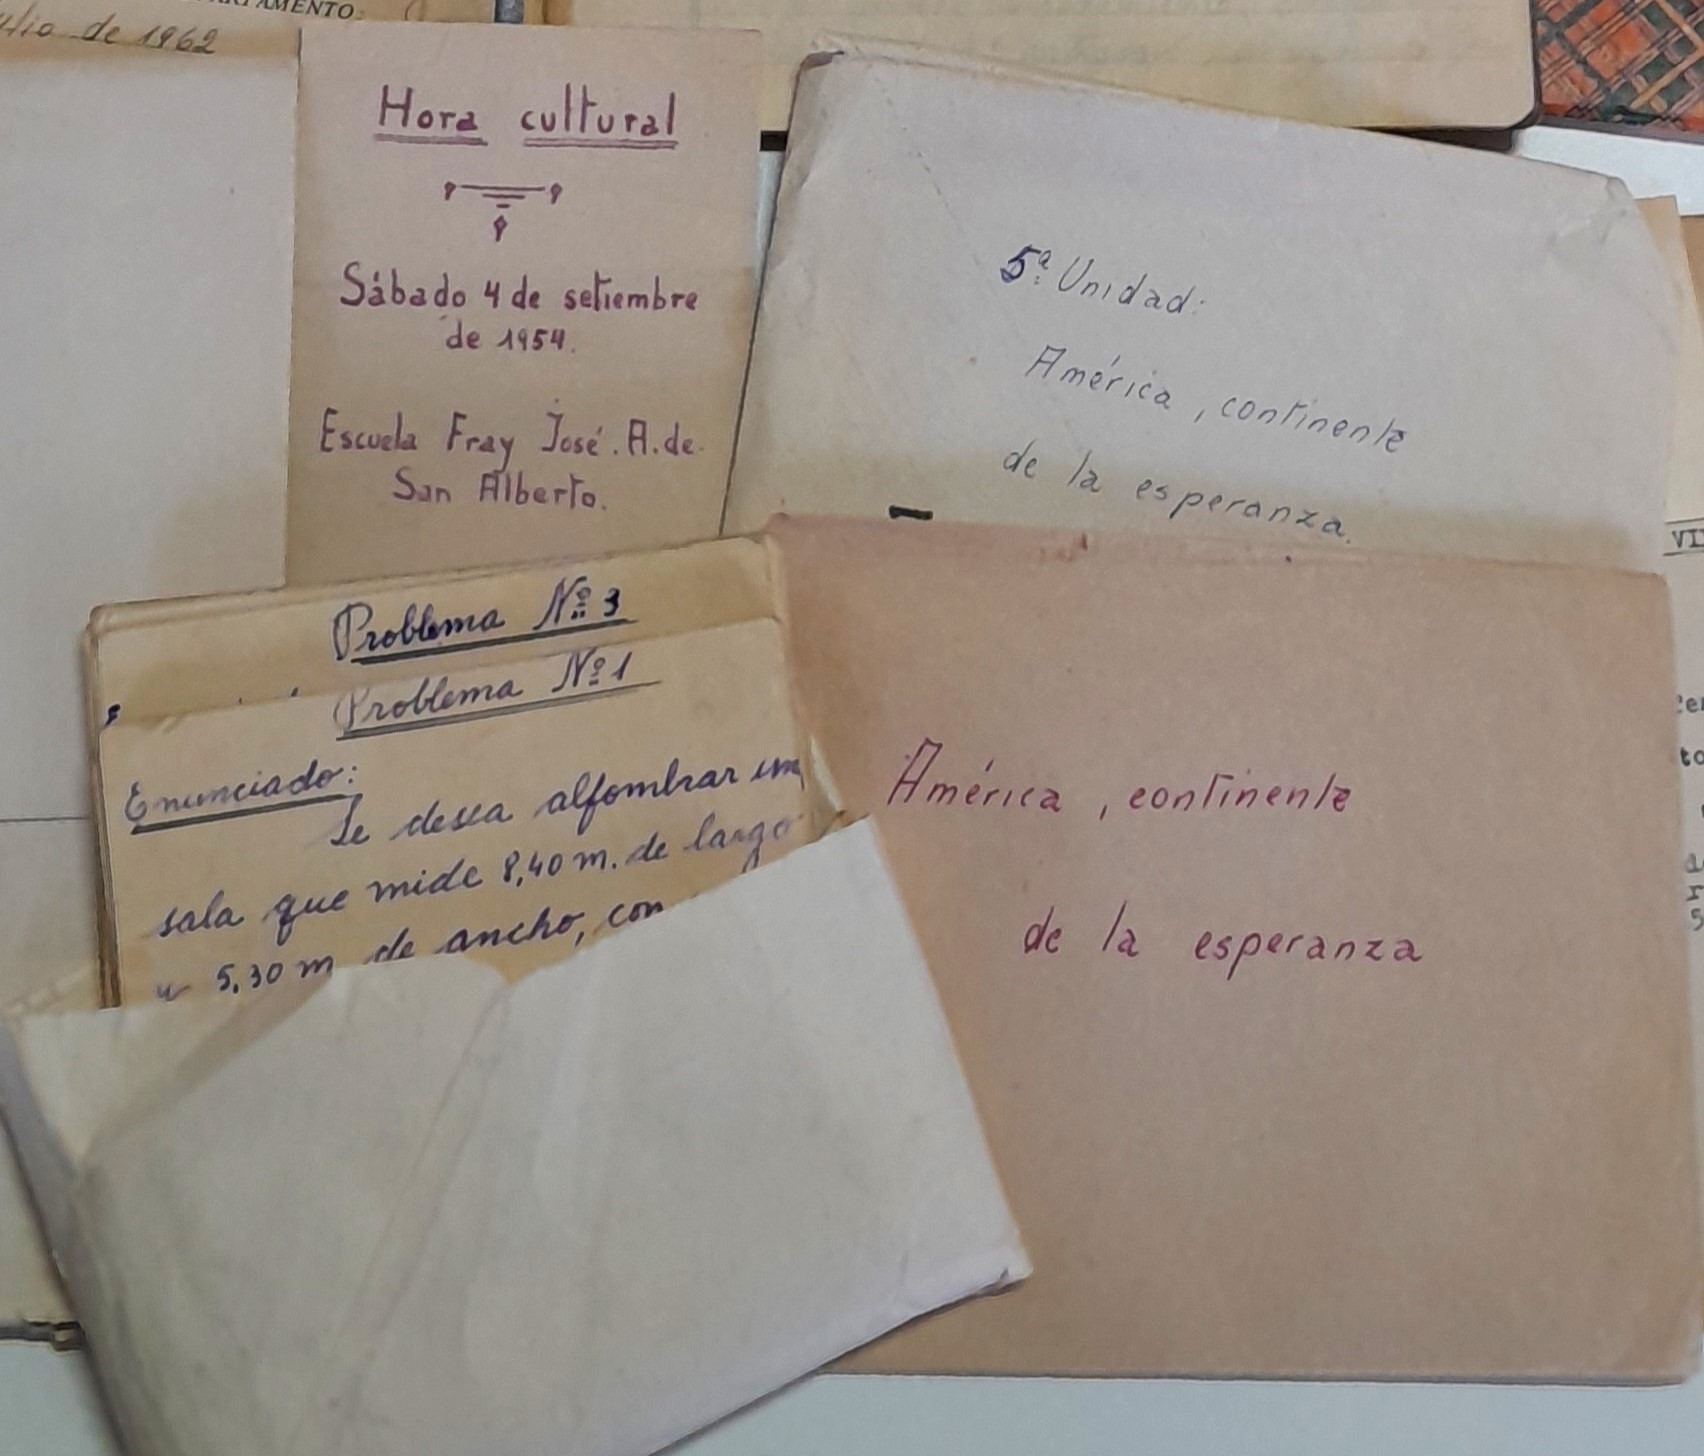 de 1962
Hora cultural
Sábado 4 de setiembre
de 1954.
Escuela Fray José. A. de.
San Alberto.
5ª Unidad:
América, continente
de la esperanza.
Problema Nº 3
Problema Nº 1
Enunciado:
Se desea alfombrar una
sala que mide 8,40 m. de largo
y 5,30 m de ancho, con
América, continente
de la esperanza
VII